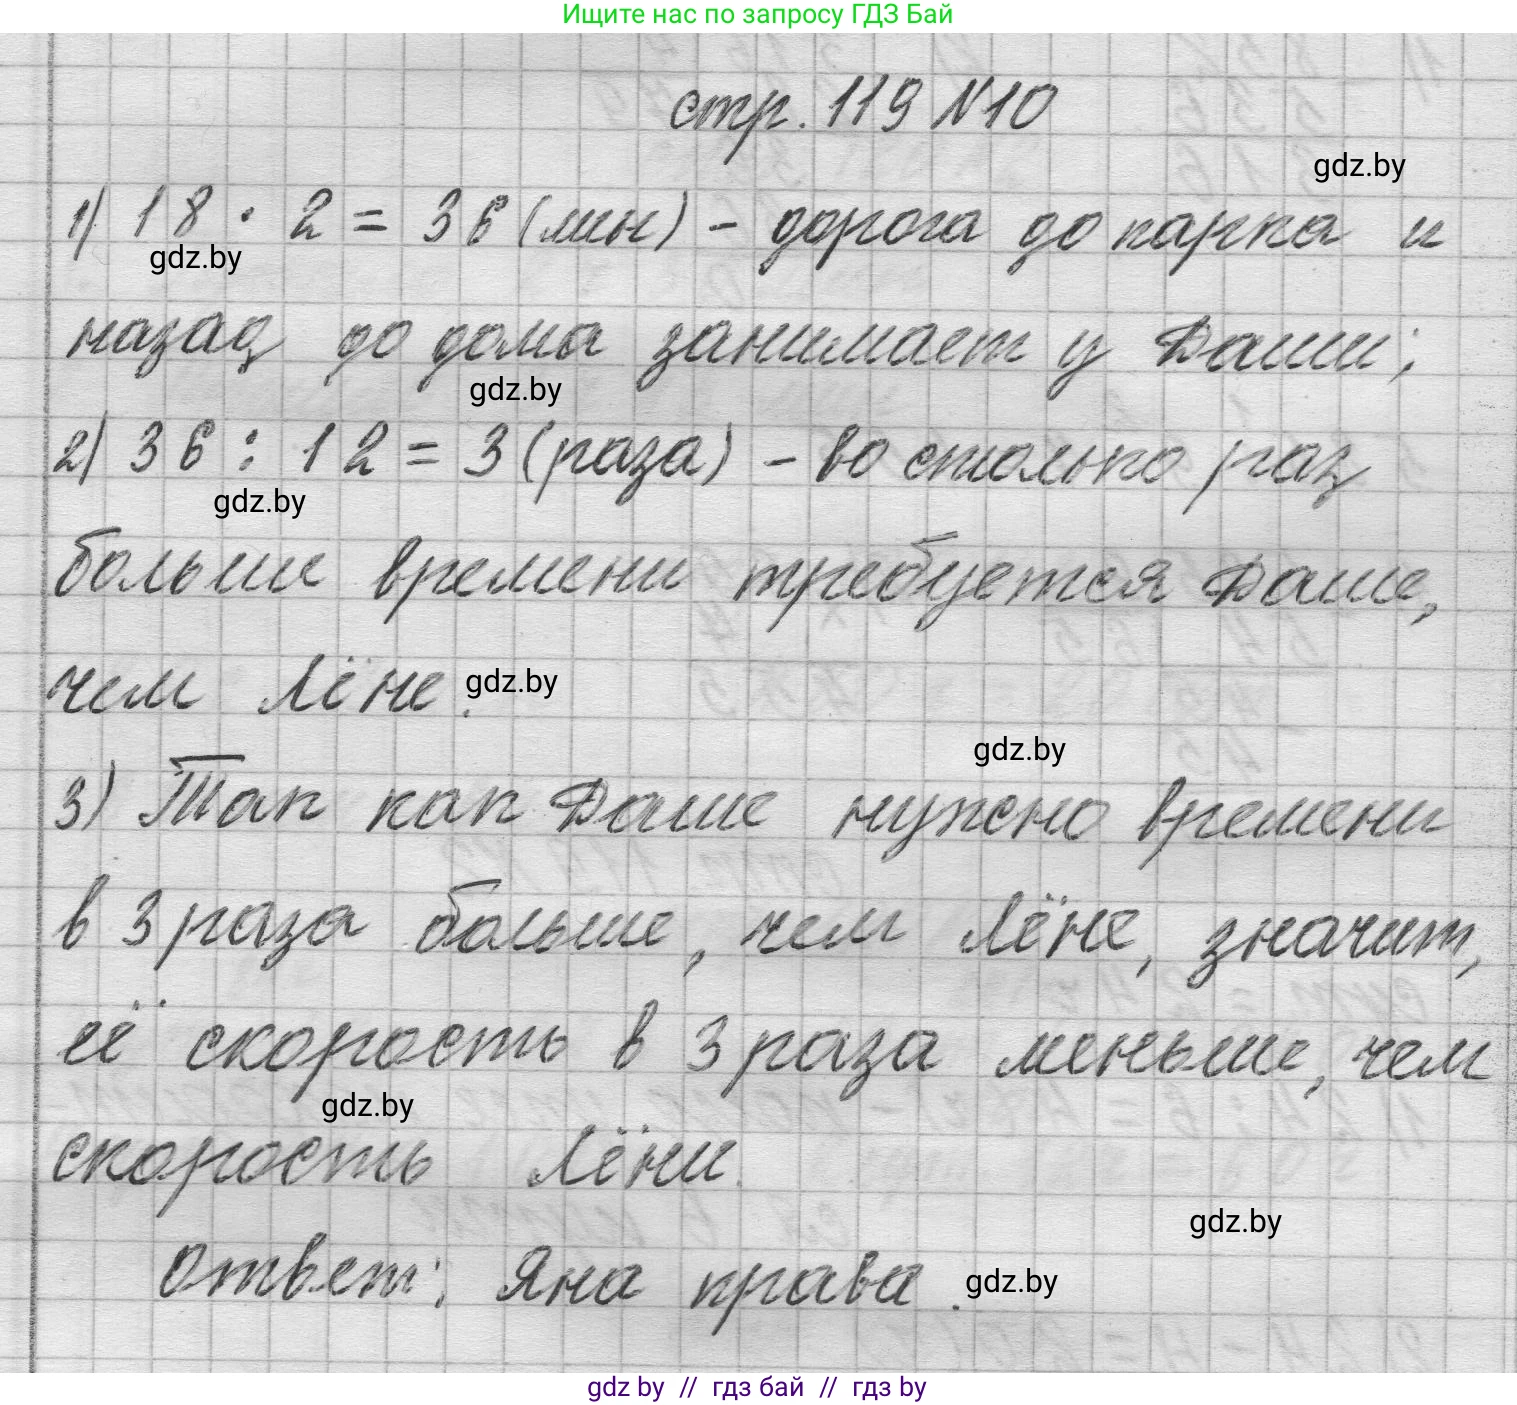 Ищите нас по запросу ГДЗ Бай
стр. 119 N10
gdz.by
1) 18 · 2 = 36 (мин) - дорога до парка и
gdz.by
назад до дома занимает у Даши;
gdz.by
2) 36 : 12 = 3 (раза) - во столько раз
gdz.by
больше времени требуется Даше,
чем Лёне.
gdz.by
gdz.by
3) Так как Даше нужно времени
в 3 раза больше, чем Лёне, значит,
её скорость в 3 раза меньше, чем
gdz.by
скорость Лёни.
gdz.by
Ответ: Яна права.
gdz.by
gdz by // гдз бай // гдз by